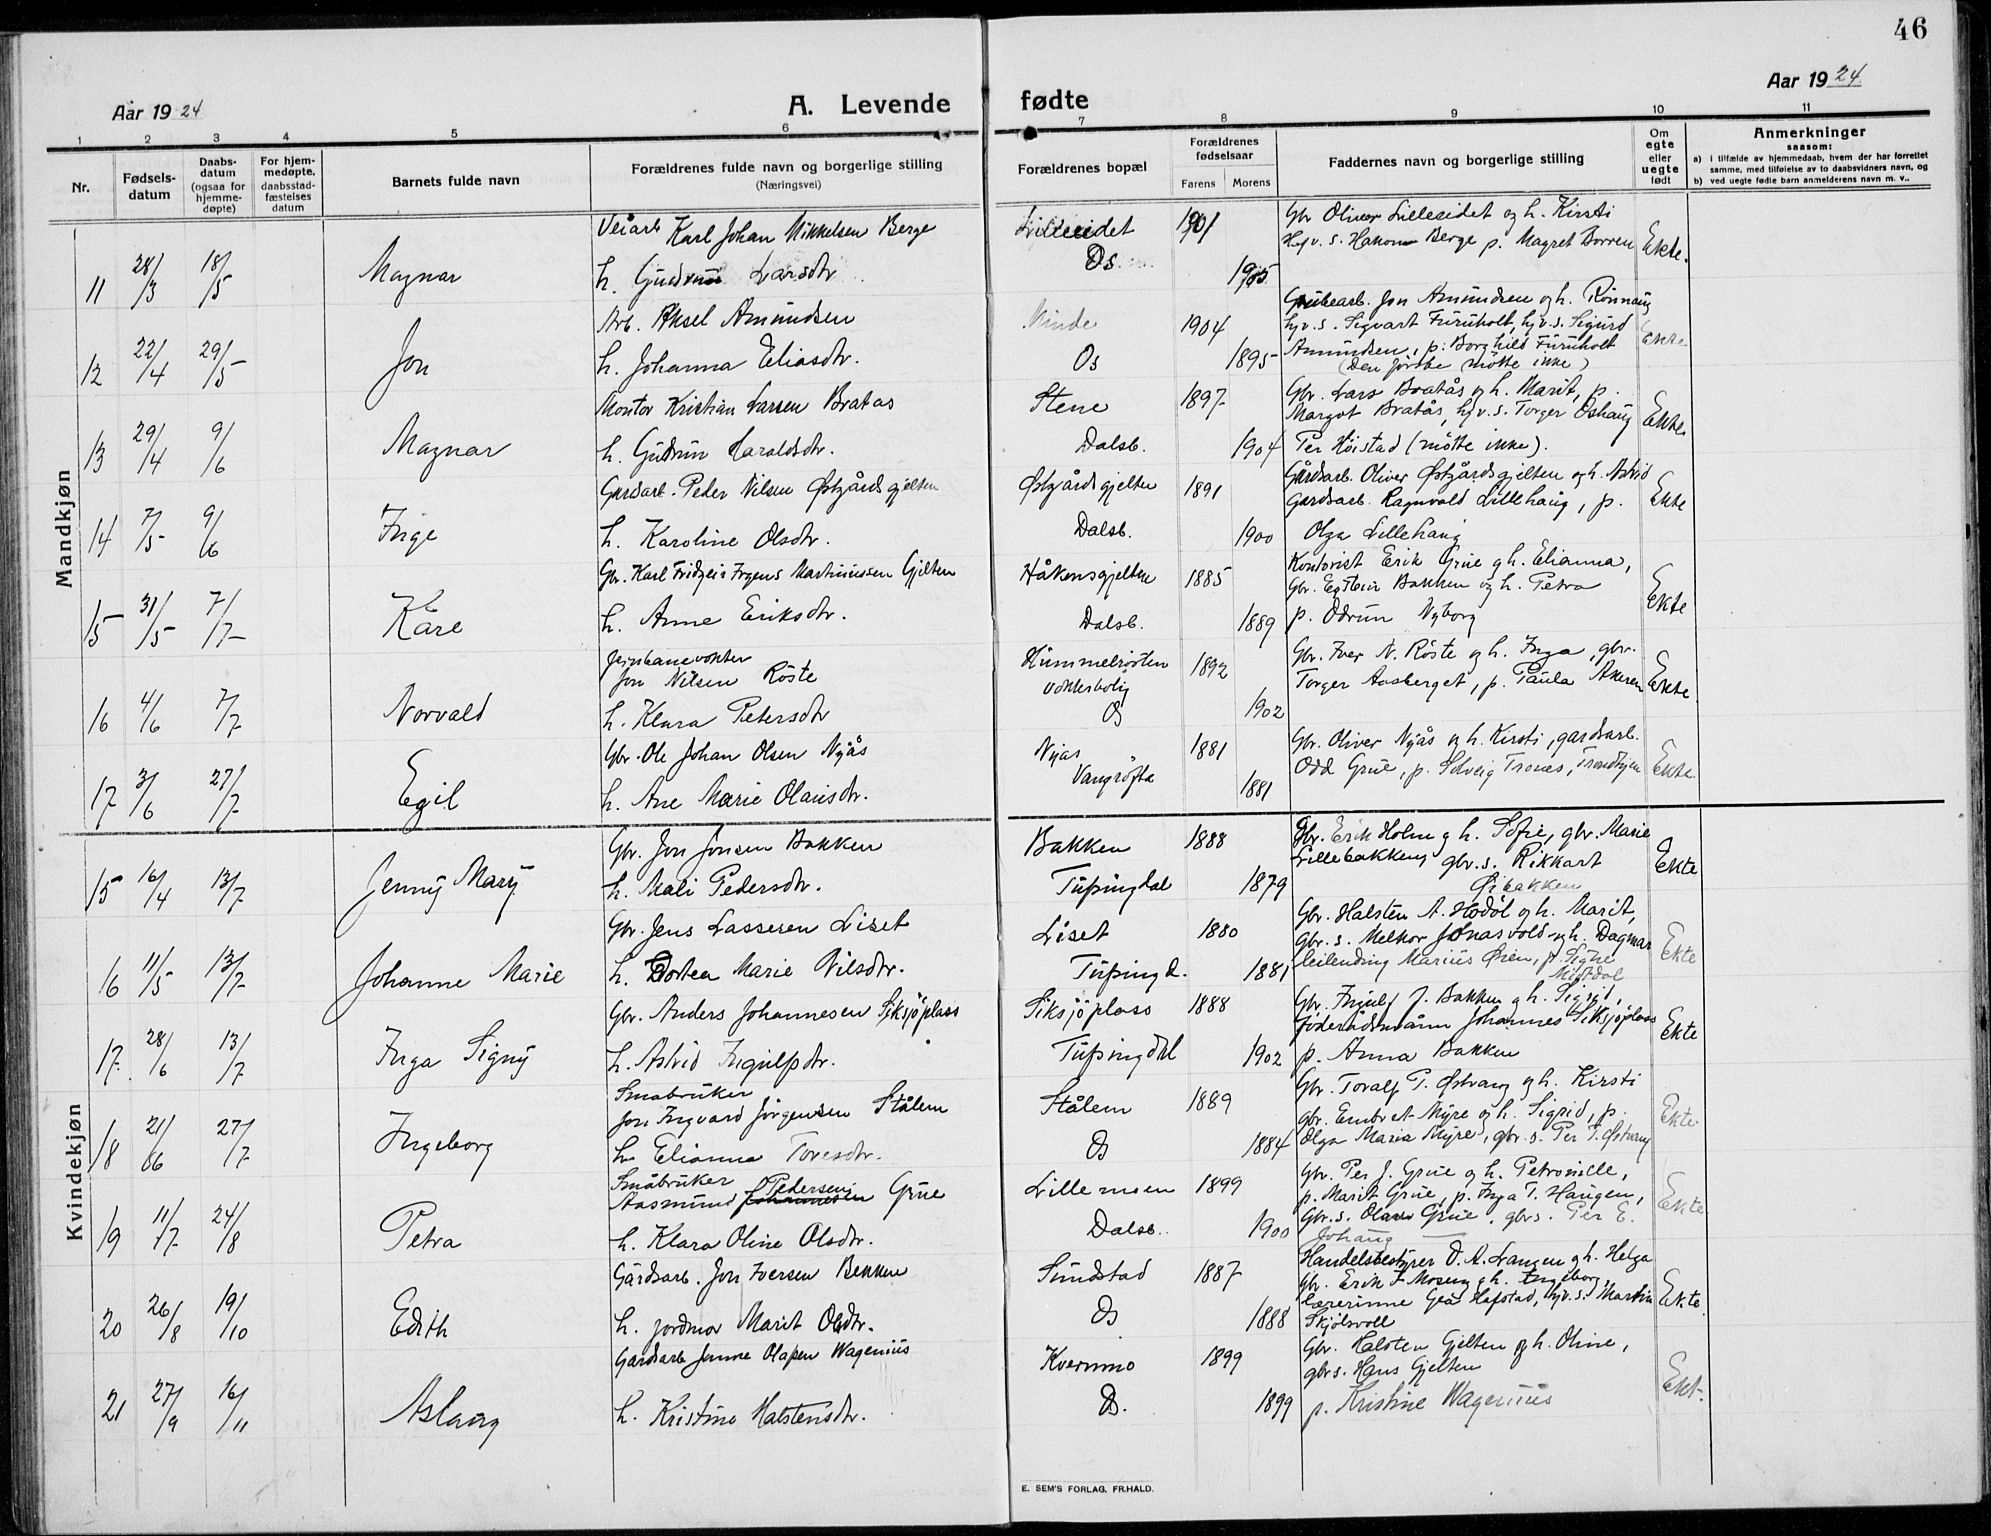 46
Aar 1924
A. Levende fødte
Aar 1924
1 2 3 4 5 6 7 8 9 10 11
Nr.
Fødsels-
datum
Daabs-
datum
(ogsaa for
hjemme-
døpte)
For hjem-
medøpte,
daabsstad-
fæstelses
datum
Barnets fulde navn
Forældrenes fulde navn og borgerlige stilling
(Næringsvei)
Forældrenes bopæl
Forældrenes
fødselsaar
Farens Morens
Faddernes navn og borgerlige stilling
Om
egte
eller
uegte
født
Anmerkninger
saasom:
a) i tilfælde av hjemmedaab, hvem der har forrettet
samme, med tilføielse av to daabsvidners navn, og
b) ved uegte fødte barn anmelderens navn m. v..
Mandkjøn
Veiarb Karl Johan Mikkelsen Berge Lilleeidet 1901 Gbr Oliver Lilleeidet og h. Kirsti
11 28/3 18/5 Magnar h. Gudrun Larsdtr Os. 1905 Hjv. s. Hakon Berge p. Magret Borren Ekte.
Arb. Aksel Amundsen Minde 1904 Grubearb. Jon Amundsen og h. Rönnaug
hjv. s. Sigvart Furuholt, hjv. s. Sigurd
12 22/4 29/5 Jon h. Johanna Eliasdtr. Os 1895 Amundsen, p. Borghild Furuholt Ekte
(Den förste mötte ikke)
Montör Kristian Larsen Bratås Stene 1897 Gbr. Lars Bratås og h. Marit, p.
Margot Bratås, hjv. s. Torger Oshaug
13 29/4 9/6 Magnar h. Gudrun Haraldsdtr. Dalsb. 1904 Per Höistad (mötte ikke). Ekte
Gardsarb. Peder Nilsen Østgårdsgjelten Østgårdsgjelten 1891 Gårdsarb. Oliver Østgårdsgjelten og h. Astrid
Gardsarb. Ragnvald Lillehaug, p.
14 7/5 9/6 Inge h. Karoline Olsdtr. Dalsb. 1900 Olga Lillehaug Ekte
Gbr. Karl Fridgeir Irgens Martinussen Gjelten Håkensgjelten 1885 Kontorist Erik Grue og h. Elianna,
Gbr. Egstein Bakken og h. Petra
15 31/5 7/7 Kåre h. Anne Eriksdtr. Dalsb. 1889 p. Odrun Nyborg Ekte
Jernbanevokter
Jon Nilsen Röste Hummelvolten 1892 Gbr. Iver N. Röste og h. Inga, gbr.
vokterbolig Torger Aasberget, p. Paula Akeren
16 4/6 7/7 Norvald h. Klara Petersdtr Os 1902 Ekte
Gbr. Ole Johan Olsen Nyås Nyås 1881 Gbr. Oliver Nyås og h. Kirsti, gardsarb.
Vangröfta Odd Grue, p. Solveig Trones, Trondhjem
17 3/6 27/7 Egil h. Ane Marie Olausdtr. 1881 Ekte
Kvindekjøn
Gbr. Jon Jonsen Bakken Bakken 1888 Gbr. Erik Holm og h. Sofie, gbr. Marie
Lillebakken, gbr. s. Rikkart
15 16/4 13/7 Jenny Mary h. Mali Pedersdtr. Tufsingdal 1879 Øibakken Ekte
Gbr. Jens Lassesen Liset Liset 1880 Gbr. Halsten A. Hodöl og h. Marit,
Gbr. s. Melkor Jonasvold og h. Dagmar
16 11/5 13/7 Johanne Marie h. Dortea Marie Nilsdtr. Tufsingd. 1881 leilending Marius Øien, p. Signe Ekte
Midtdal
Gbr. Anders Johannesen Siksjöplass Siksjöplass 1888 Gbr. Ingulf J. Bakken og h. Sigrid,
Föderådsmann Johannes Siksjöplass
17. 28/6 13/7 Inga Signy h. Astrid Ingulfsdtr. Tufsingdal 1902 p. Anna Bakken Ekte
Småbruker
Jon Ingvard Jörgensen Stålem Stålem 1889 Gbr. Toralf T. Østvang og h. Kirsti
gbr. Embret Myre og h. Sigrid, p.
18 21/6 27/7 Ingeborg h. Elianna Toresdtr. Os 1884 Olga Maria Myre, gbr. s. Per T. Østvang Ekte
Småbruker
Aasmund Johannesen Pedersen Grue Lillemoen 1899 Gbr. Per J. Grue og h. Petronille,
p. Marit Grue, p. Inga T. Haugen,
19 11/7 24/8 Petra h. Klara Oline Olsdtr. Dalsb. 1900 Gbr. s. Olav Grue, gbr s. Per E. Ekte
Johaug
Gårdsarb. Jon Iversen Bekken Sundstad 1887 Handelsbestyrer O. A. Langen og h. Helga
Gbr. Erik J. Moseng og h. Ingeborg,
20 26/8 19/10 Edith h. jordmor Marit Olsdtr. Os 1888 Lærerinne Gea Hafstad, hjv. s. Martin Ekte
Skjölsvoll
Gardsarb Janne Olafsen Wagenius Kvernmo 1899 Gbr. Halsten Gjelten og h. Oline,
gbr s. Hans Gjelten
21 27/9 16/11 Aslaug h. Kristine Halstensdtr. Os. 1899 p. Kristine Wagenius Ekt.
E. SEM'S FORLAG, FR.HALD.